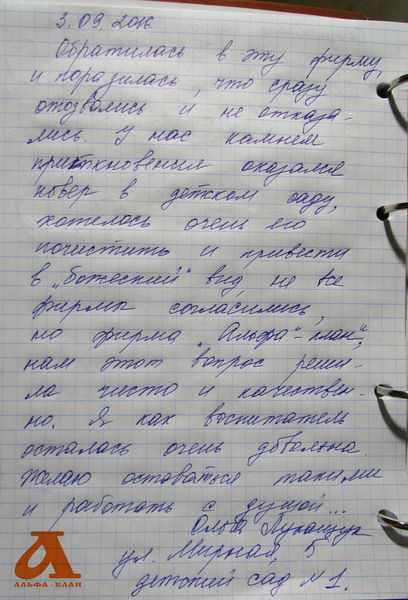 3.09.2016
Обратилась в эту фирму
и поразилась, что сразу
отозвались и не отказа-
лись. У нас камнем
приткновения оказался
ковер в детском саду,
хотелось очень его
почистить и привести
в „божеский“ вид, не все
фирмы согласились,
но фирма „Альфа-клан“
нам этот вопрос реши-
ла чисто и качествен-
но. Я как воспитатель
осталась очень довольна.
Желаю оставаться такими
и работать с душой...
Ольга Лукащук
ул. Мирная, 5
детский сад №1.
АЛЬФА-КЛАН